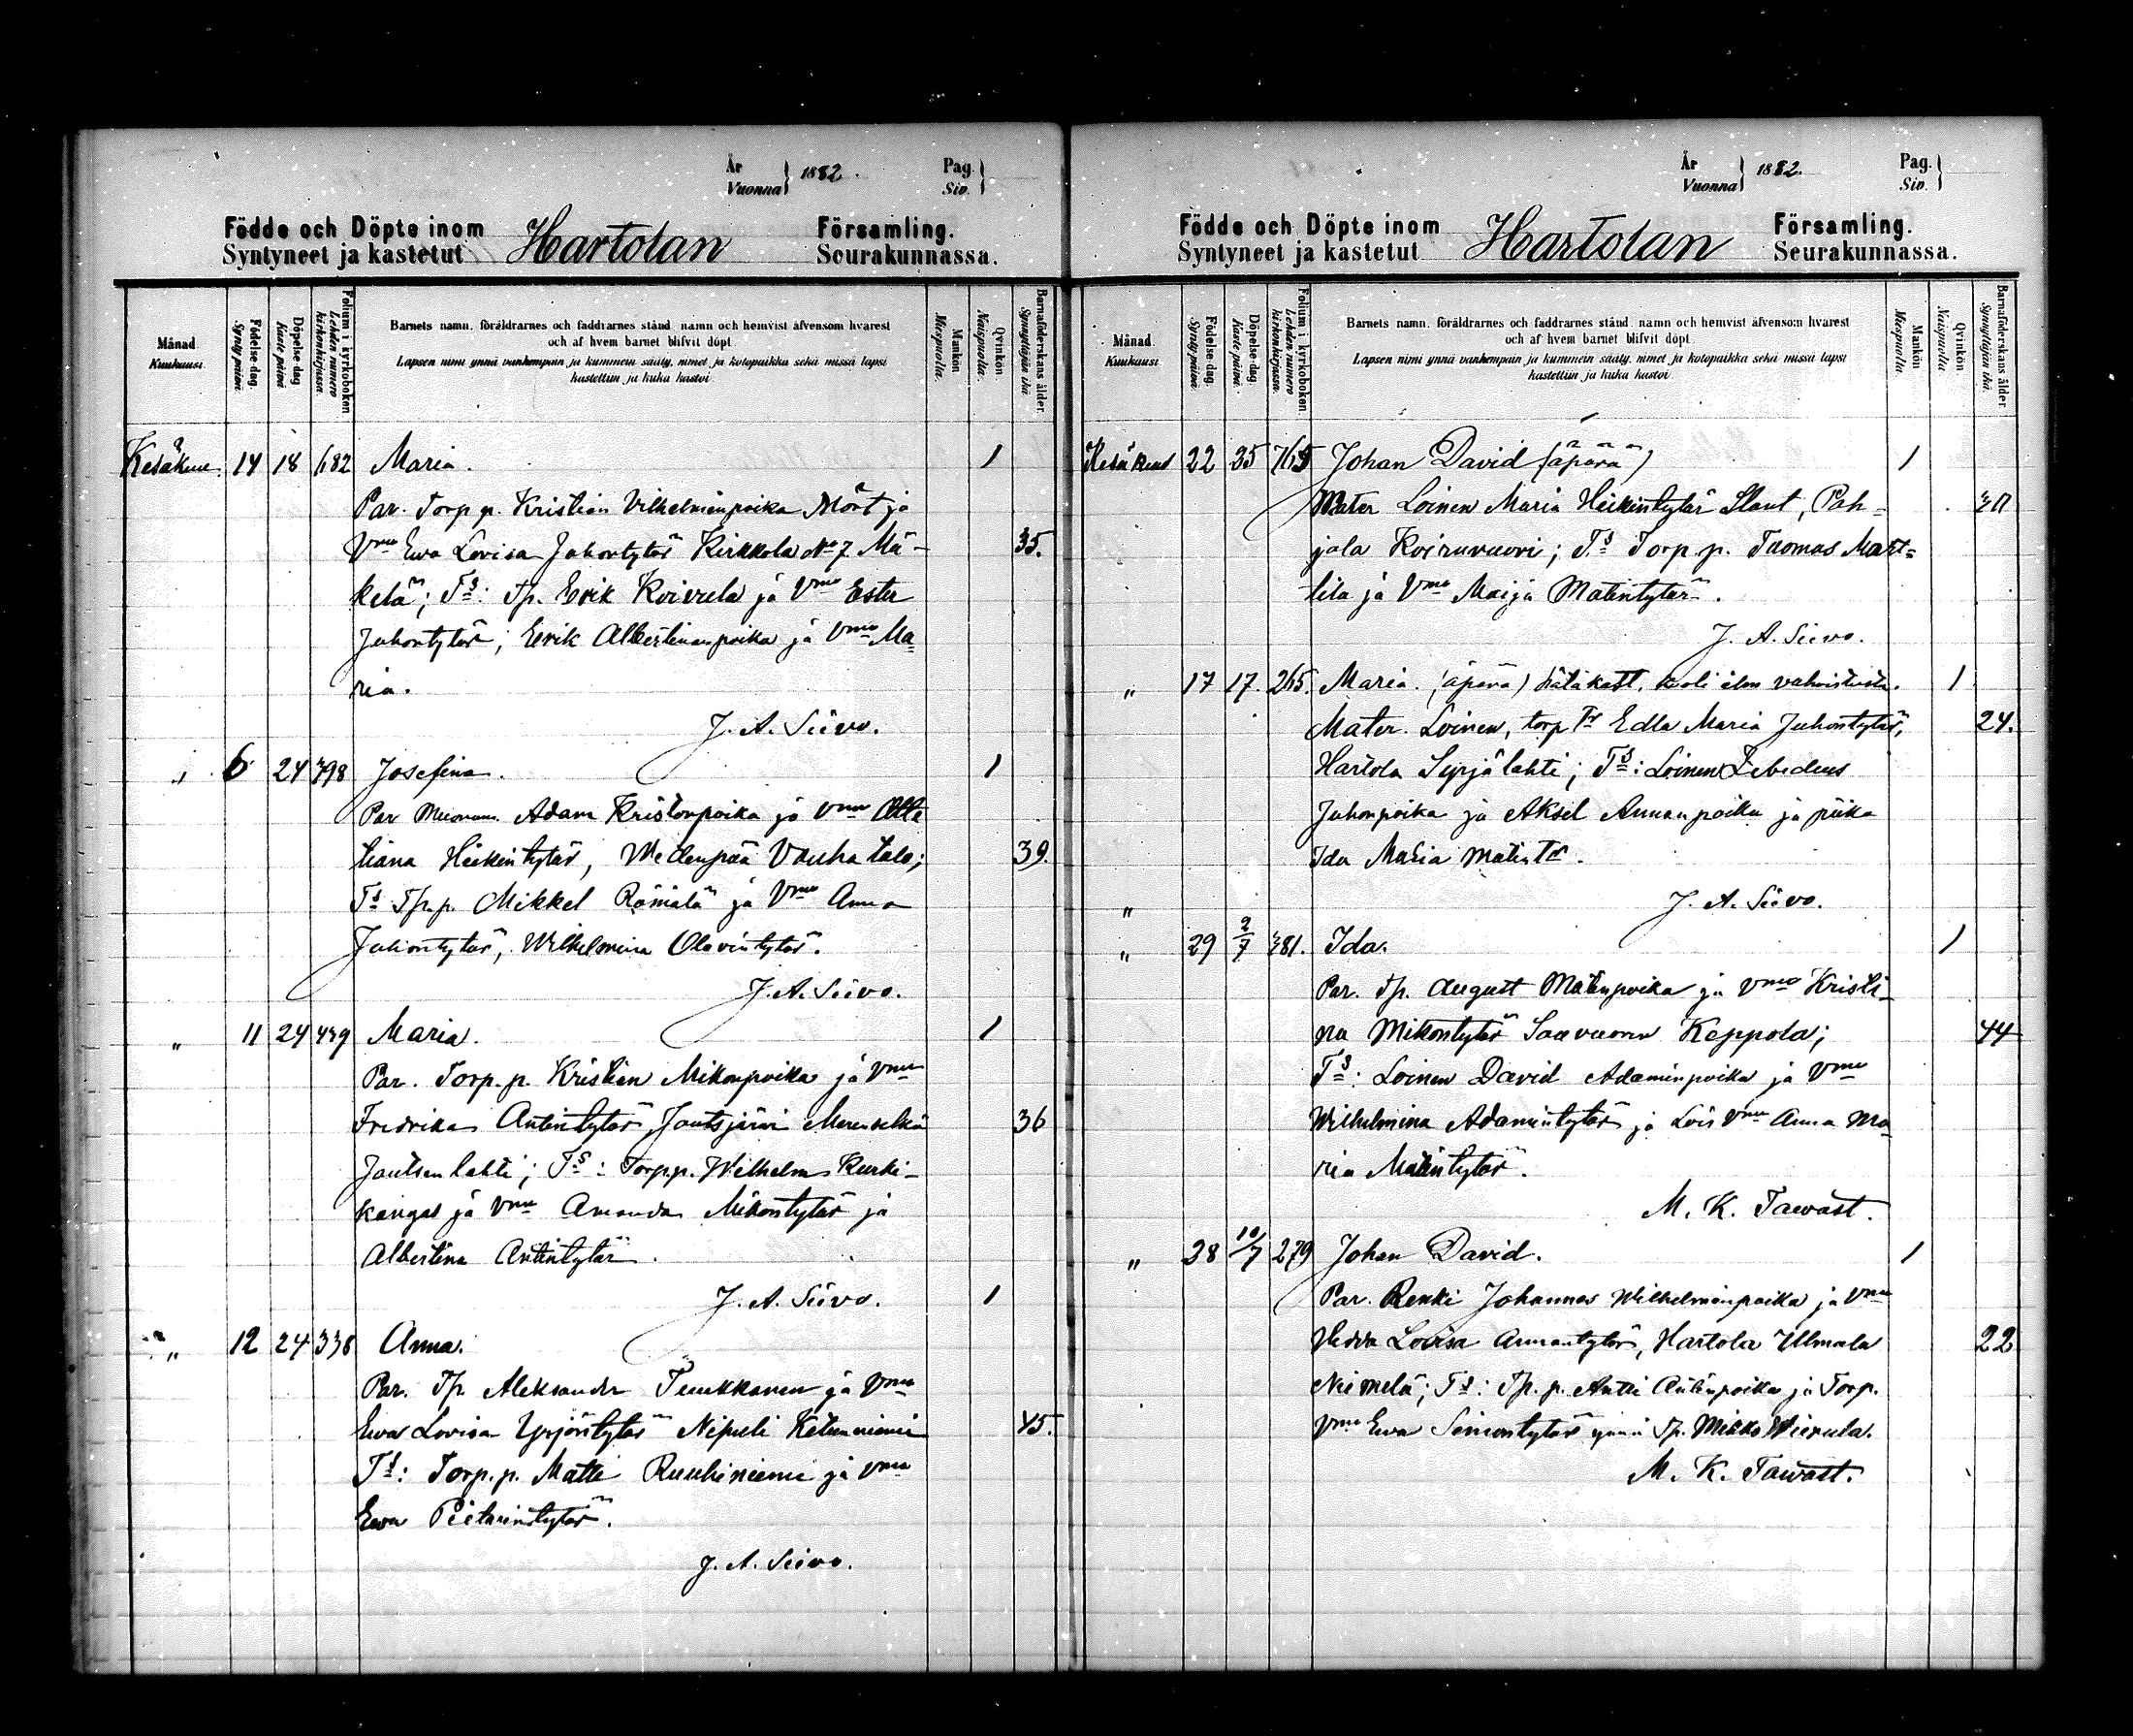 År
Vuonna } 1882.
Pag.
Siv. }
Födde och Döpte inom
Syntyneet ja kastetut
Hartolan
Församling.
Seurakunnassa.
Månad
Kuukausi.
Födelse dag.
Synty päivä.
Döpelse dag
Kaste päivä
Folium i kyrkoboken
Lehden numero
kirkonkirjassa.
Barnets namn, föräldrarnes och faddrarnes stånd, namn och hemvist äfvensom hvarest
och af hvem barnet blifvit döpt.
Lapsen nimi ynnä vanhempain ja kummein sääty, nimet ja kotopaikka sekä missä lapsi
kastettiin ja kuka kastoi
Mankön
Miespuolia.
Qvinkön.
Naispuolia.
Barnaföderskans ålder.
Synnyttäjän ikä.
Kesäkuu 14 18 682 Maria. 1
Par. Torp.p. Kristian Vilhelminpoika Mört ja
Vmo Ewa Lovisa Juhontytär Kirkkola No 7 Mä- 35.
kelä; Ts: Tp. Erik Koivula ja Vmo Ester
Juhontytär; Eerik Albertinanpoika ja Vmo Ma-
ria.
J. A. Siivo.
„ 6 24 798 Josefina. 1
Par Adam Kristonpoika ja Vmo
tiana Heikintytär, Wedenpää Vauhatalo; 39.
Ts Tp.p. Mikkel Rämälä ja Vmo Anna
Juhontytär, Wilhelmina Olavintytär.
J. A. Siivo.
„ 11 24 439 Maria. 1
Par. Torp.p. Kristian Mikonpoika ja Vmo
Fredrika Antintytär, Joutsjärvi Marenselkä 36
Joutsenlahti; Ts: Torp.p. Wilhelm Kurki-
kangas ja Vmo Amanda Mikontytär ja
Albertina Antintytär.
J. A. Siivo. 1
„ 12 24 338 Anna.
Par. Tp. Aleksander ja Vmo
Ewa Lovisa Yrjöntytär Nipuli Ketunniemi 45.
Ts: Torp.p. Matti Ruuhiniemi ja Vmo
Ewa Pietarintytär.
J. A. Siivo.
År
Vuonna } 1882.
Pag.
Siv. }
Födde och Döpte inom
Syntyneet ja kastetut
Hartolan
Församling.
Seurakunnassa.
Månad
Kuukausi.
Födelse dag.
Synty päivä.
Döpelse dag
Kaste päivä
Folium i kyrkoboken.
Lehden numero
kirkonkirjassa.
Barnets namn, föräldrarnes och faddrarnes stånd, namn och hemvist äfvensom hvarest
och af hvem barnet blifvit döpt
Lapsen nimi ynnä vanhempain ja kummein sääty, nimet ja kotopaikka sekä missä lapsi
kastettiin ja kuka kastoi
Mankön
Miespuolia.
Qvinkön
Naispuolia
Barnaföderskans ålder
Synnyttäjän ikä.
Kesäkuu 22 25 765 Johan David (äpärä) 1
Mater Loinen Maria Heikintytär Slant, Poh-
jola Koiruvuori; Ts Torp.p. Tuomas Mart-
tila ja Vmo Maija Matintytär.
J. A. Siivo.
„ 17 17. 265. Maria. (äpärä) hätäkast. kuoli ilm vahvistusta. 1
Mater. Loinen, torp Tr Edla Maria Juhontytär, 24.
Hartola Syrjälahti; Ts: Loinen Zebedeus
Juhonpoika ja Aksel Annanpoika ja piika
Ida Maria Matintr.
„ J. A. Siivo.
„ 29 2/7 381. Ida. 1
Par. Tp. August Matinpoika ja Vmo Kristi-
na Mikontytär Saavuoren Keppola; 44
Ts: Loinen David Adaminpoika ja Vmo
Wilhelmina Adamintytär ja Lois Vmo Anna Ma-
ria Matintytär.
M. K. Tawast.
„ 28 10/7 279 Johan David. 1
Par. Renki Johannes Wilhelminpoika ja Vmo
Hedda Lovisa Annantytär, Hartola Ulmala 22
Niemelä; Ts: Tp.p. Antti Antinpoika ja Torp.
Vmo Ewa Simontytär ynnä Tp. Mikko Wierula.
M. K. Tawast.